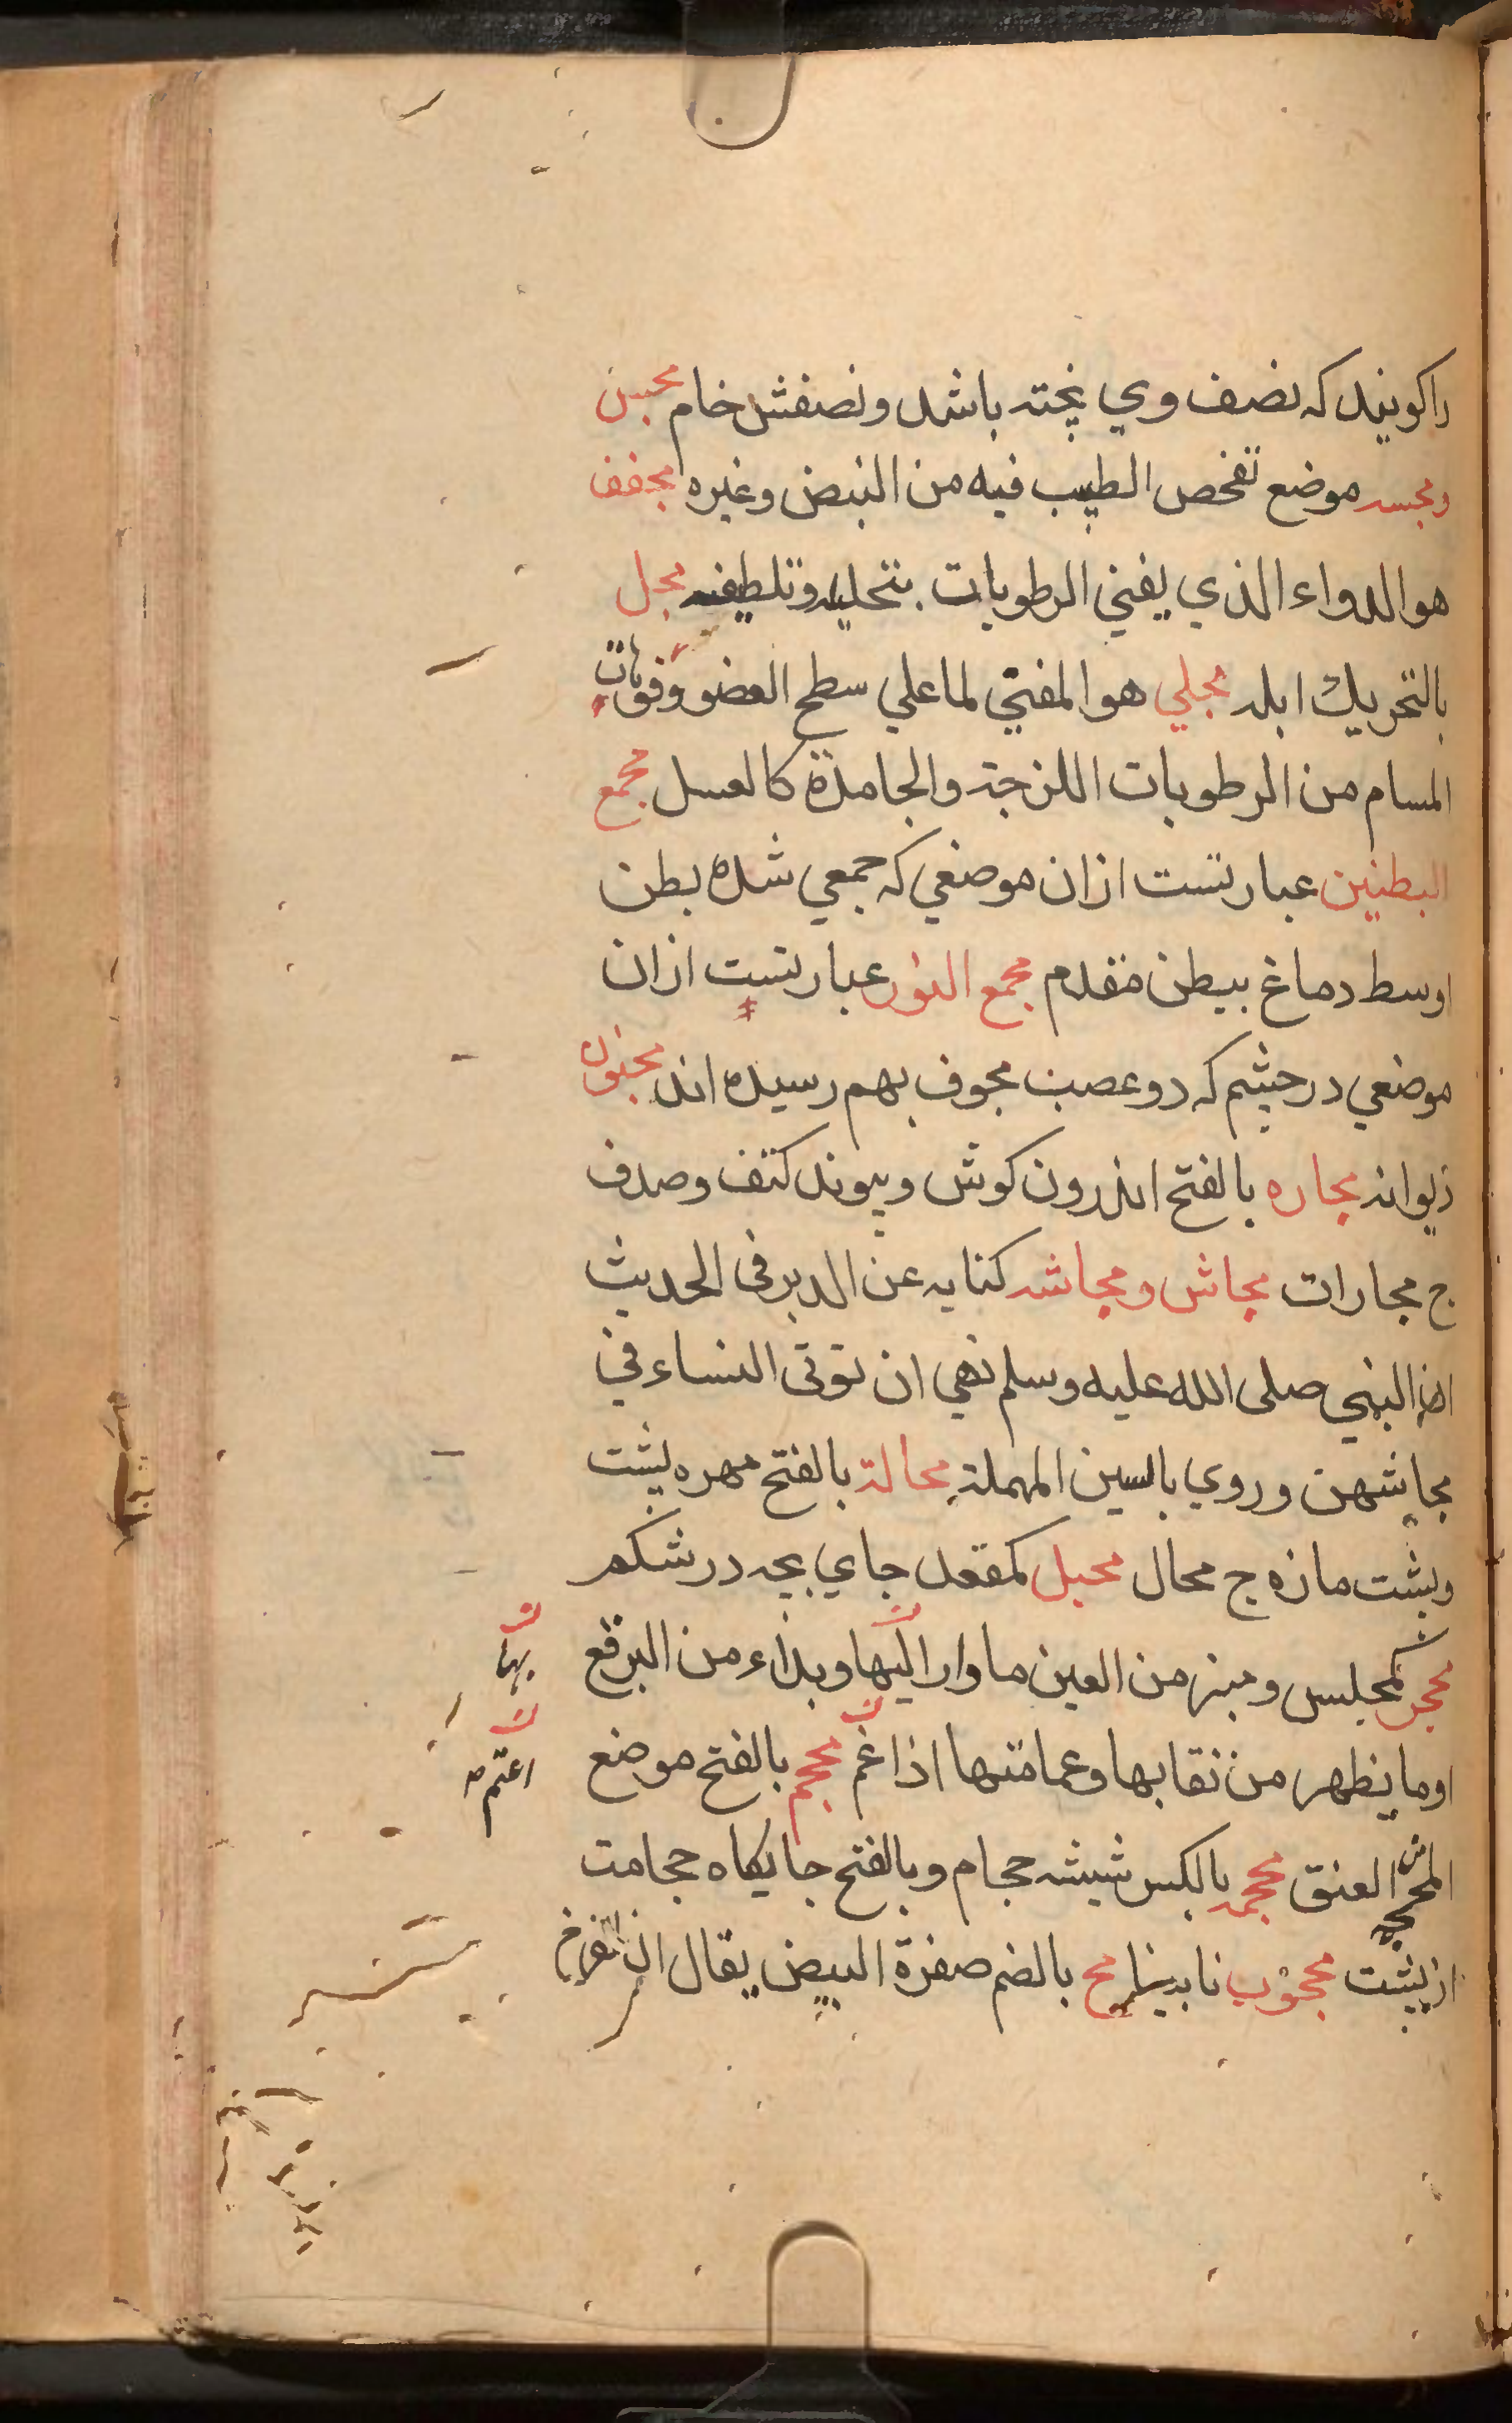 راكويند كه نصف وي پخته باشد و نصفش خام محبس
و مجسه موضع تفحص الطبيب فيه من النبض وغيره مجفف
هو الدواء الذي يفني الرطوبات بتحليله وتلطيفه مجل
بالتحريك ابله مجلي هو المفتي لما علي سطح العضو وفوهات
المسام من الرطوبات اللزجة والجامدة كالعسل مجمع
البطنين عبارتست ازان موضعي كه جمعي شده بطن
اوسط دماغ ببطن مقدم مجمع النور عبارتست ازان
موضعي در چشم كه دو عصب مجوف بهم رسيده اند مجنون
ديوانه مجاره بالفتح اندرون كوش و پيوند كتف وصدف
ج مجارات مجاش ومجاشه كنايه عن الدبر في الحديث
ان النبي صلى الله عليه وسلم نهي ان توتى النساء في
مجاشهن وروي بالسين المهملة محالة بالفتح مهره پشت
وپشت مازه ج محال محبل كمقعد جاي بچه در شكم
محجر كمجلس ومنبر من العين ما وار اليها وبداء من البرقع
بها
او ما يظهر من نقابها وعمامتها اذا غم محجم بالفتح موضع
اعتم صه
المحجمة من العنق محجمه بالكسر شيشه حجام وبالفتح جايكاه حجامت
از پشت محجوب نابينا مح بالضم صفرة البيض يقال ان الفرخ